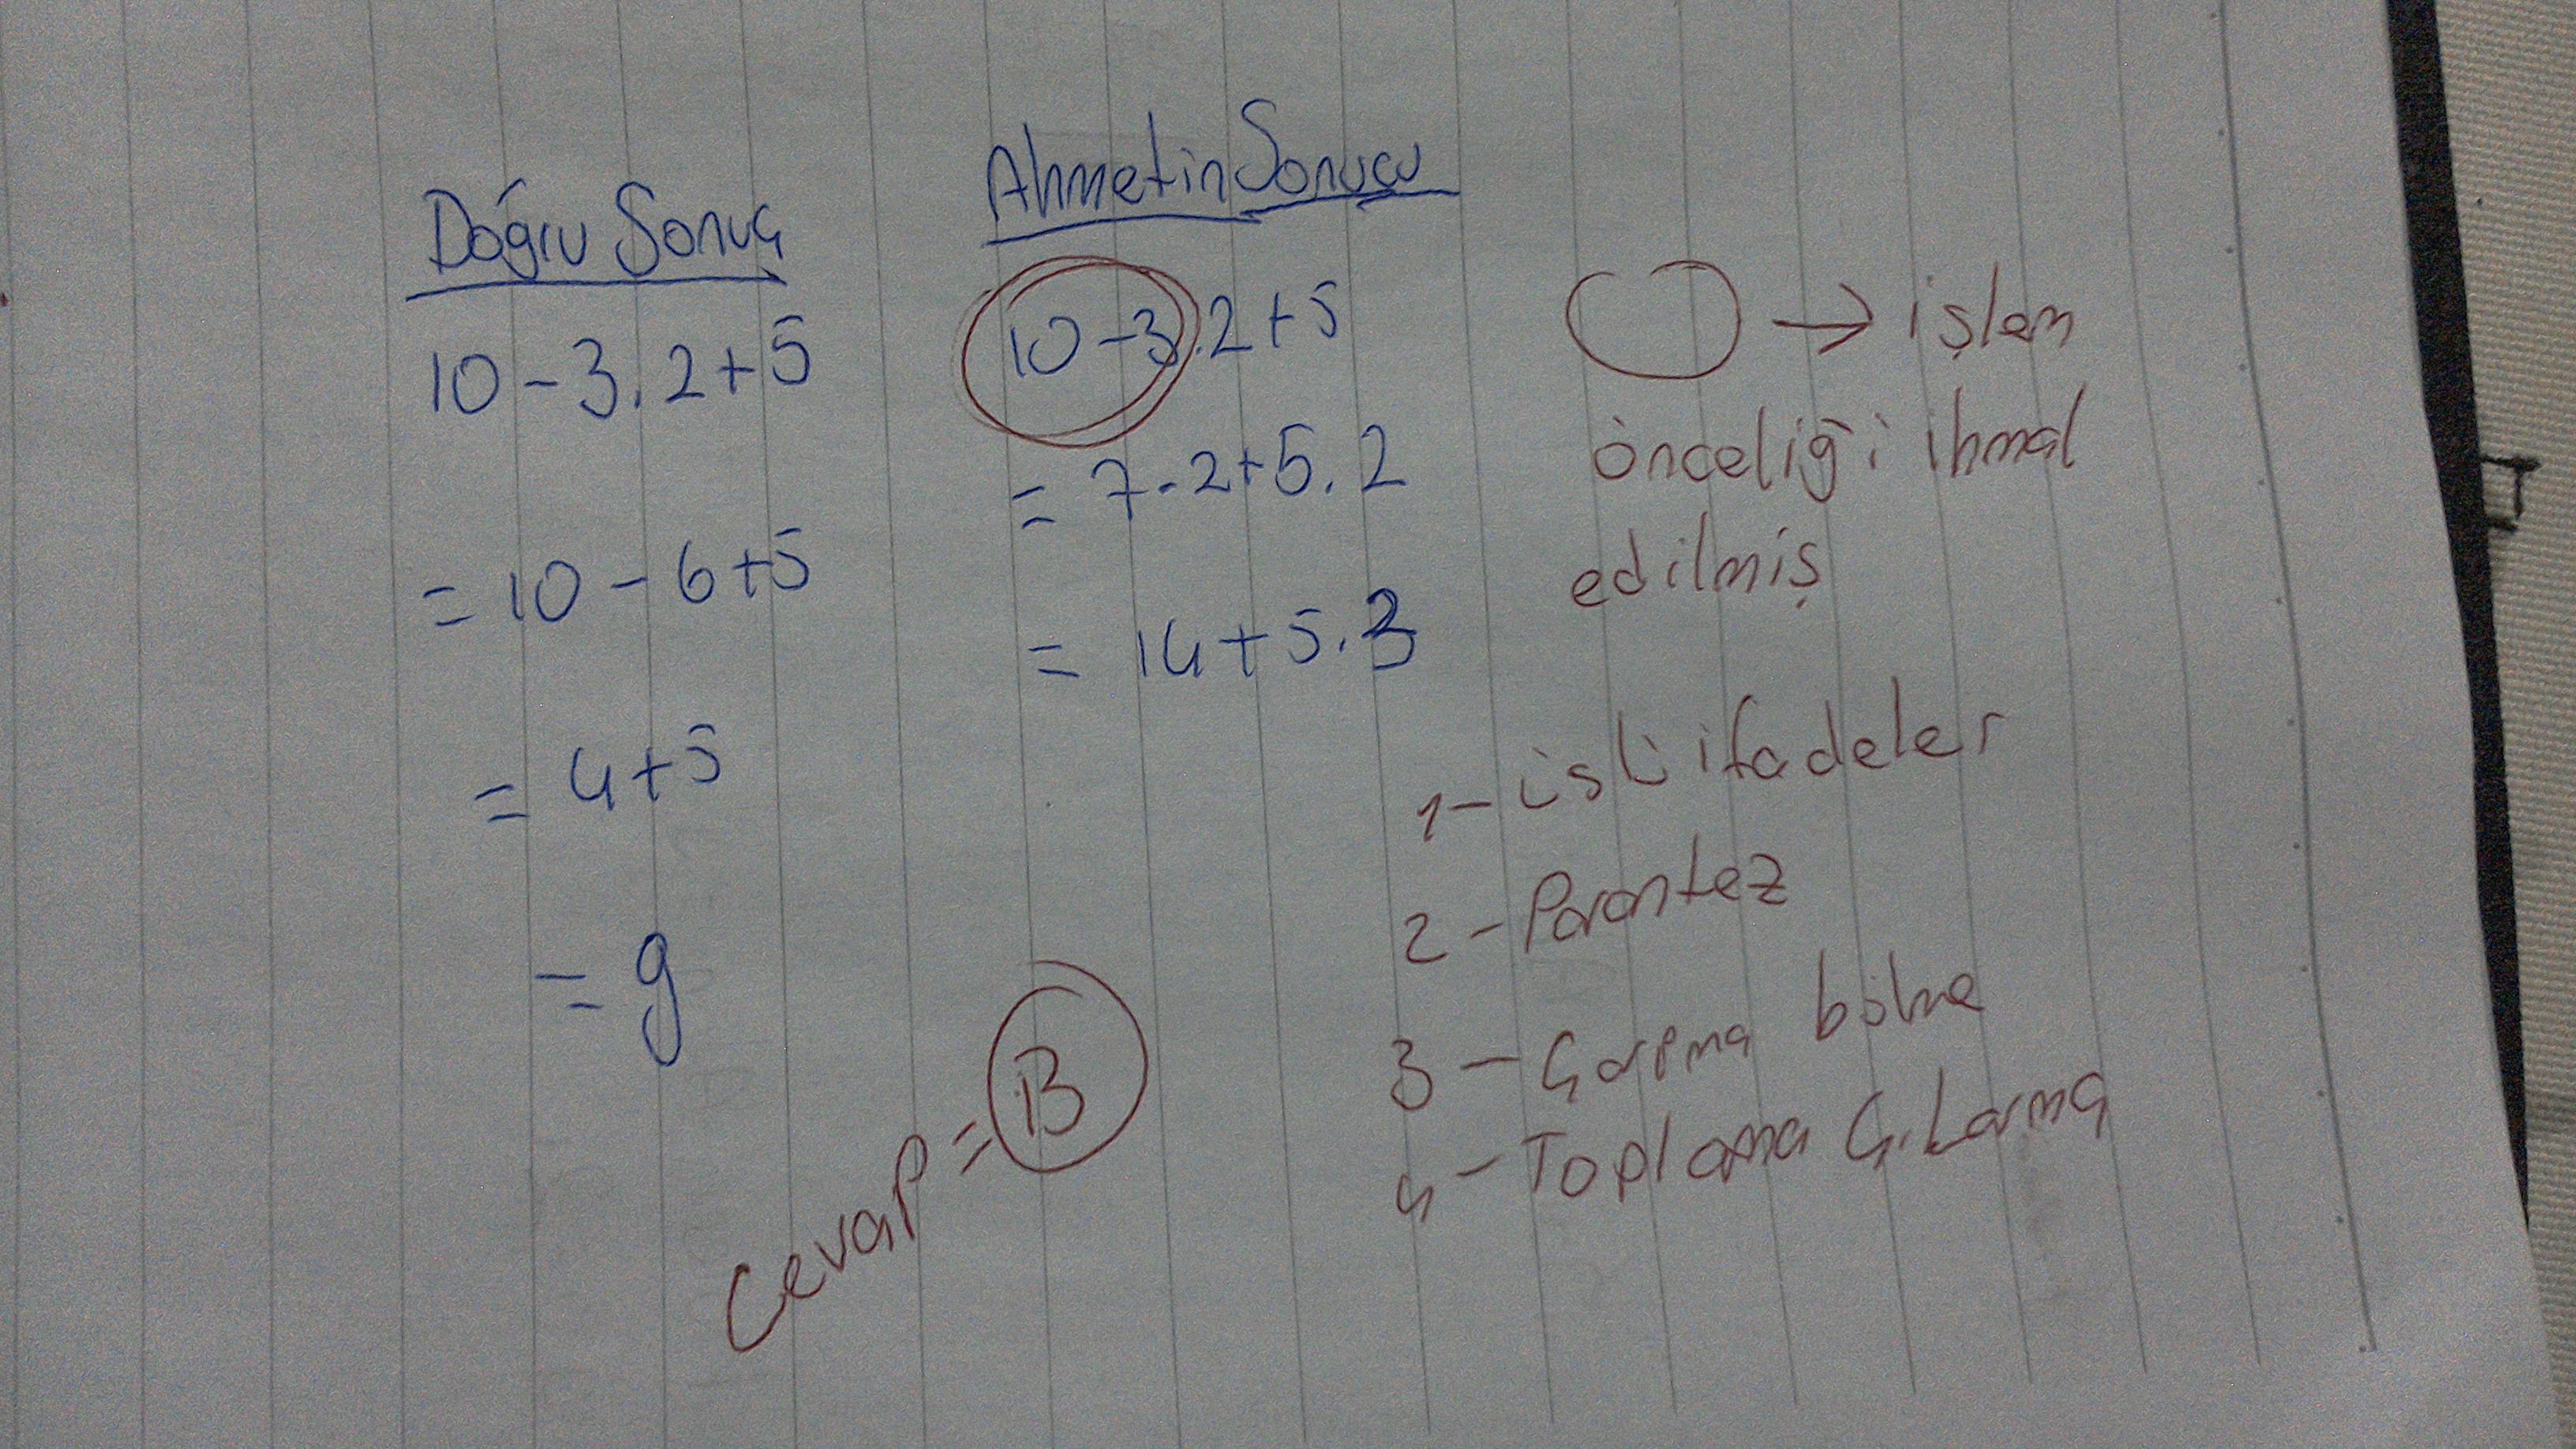 Doğru Sonuç
10-3.2+5
=10-6+5
=4+5
=9
Ahmetin Sonucu
10-3.2+5
=7.2+5.2
=14+5.3
→ işlem
önceliği ihmal
edilmiş
1-üslü ifadeler
2-Parantez
3-Çarpma bölme
4-Toplama Çıkarma
Cevap=B